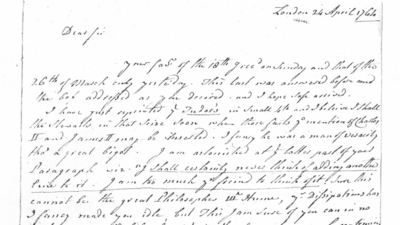 London 24 April 1764
Dear Sir
your fav.r of the 18th I rec'd on Sunday and that of the
26th of March only yesterday. This last was answered before and
the box addressed as you desired and I hope safe arrived.
I have just reprinted ye Tudors in 4to and I believe I shall
the Stewarts in that Size soon when those facts ye mention of Charles
II and James II may be Inserted. I fancy he was a man of veracity
tho a great bigot. I am astonished at ye latter part of your
Paragraph viz. ye shall certainly never think of adding another
line to it. I am too much yr friend to think of it. Sure this
cannot be the great Philosopher Mr Hume, ye Dissipation has
I fancy made you idle but This I am sure of you can in no